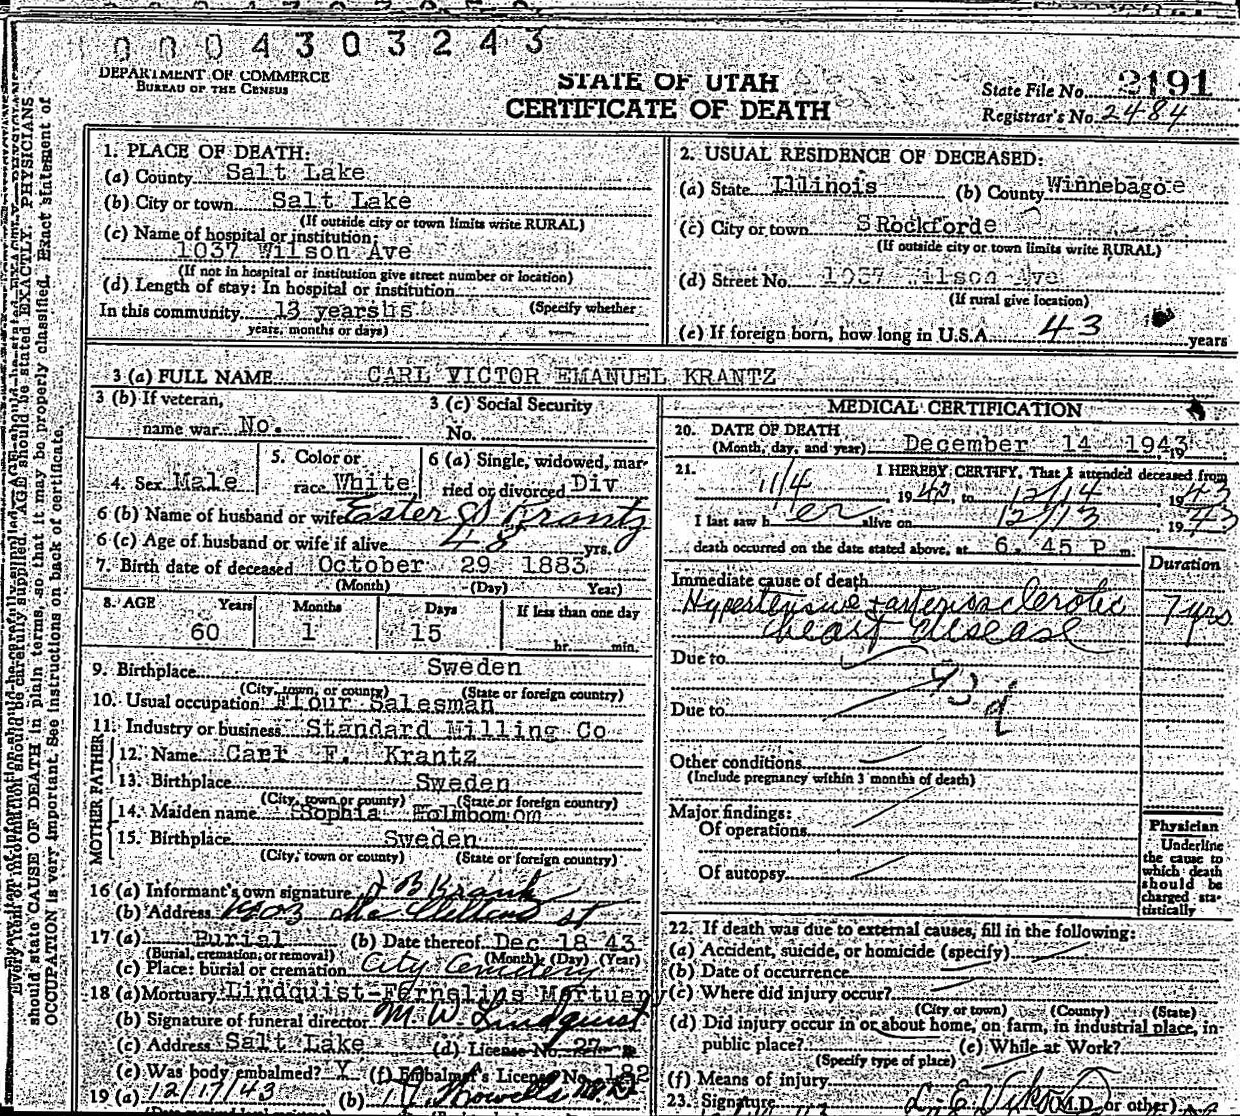 0 0 0 4 3 0 3 2 4 3
DEPARTMENT OF COMMERCE
BUREAU OF THE CENSUS
STATE OF UTAH
CERTIFICATE OF DEATH
State File No. 2191
Registrar's No. 2484
1. PLACE OF DEATH:
(a) County Salt Lake
(b) City or town Salt Lake
(If outside city or town limits write RURAL)
(c) Name of hospital or institution:
1037 Wilson Ave
(If not in hospital or institution give street number or location)
(d) Length of stay: In hospital or institution
(Specify whether
In this community 13 years
years, months or days)
2. USUAL RESIDENCE OF DECEASED:
(a) State Illinois (b) County Winnebago
(c) City or town Rockford
(If outside city or town limits write RURAL)
(d) Street No. 1037 Wilson Ave
(If rural give location)
(e) If foreign born, how long in U.S.A. 43 years
3 (a) FULL NAME CARL VICTOR EMANUEL KRANTZ
3 (b) If veteran,
name war No.
3 (c) Social Security
No.
4. Sex Male
5. Color or
race White
6 (a) Single, widowed, mar-
ried or divorced Div
6 (b) Name of husband or wife Ester Krantz
6 (c) Age of husband or wife if alive 48 yrs.
7. Birth date of deceased October 29 1883
(Month) (Day) Year)
8. AGE Years Months Days If less than one day
60 1 15 hr. min.
9. Birthplace Sweden
(City, town, or county) (State or foreign country)
10. Usual occupation Flour Salesman
11. Industry or business Standard Milling Co
FATHER
12. Name Carl F. Krantz
13. Birthplace Sweden
(City, town or county) (State or foreign country)
MOTHER
14. Maiden name Sophia Holmbom
15. Birthplace Sweden
(City, town or county) (State or foreign country)
16 (a) Informant's own signature
(b) Address St
17 (a) Burial (b) Date thereof Dec 18 43
(Burial, cremation, or removal) (Month) (Day) (Year)
(c) Place: burial or cremation City Cemetery
18 (a) Mortuary Lindquist-Fernelius Mortuary
(b) Signature of funeral director M. W. Lindquist
(c) Address Salt Lake (d) License No. 27
(e) Was body embalmed? Y (f) Embalmer's License No. 182
19 (a) 12/17/43 (b)
MEDICAL CERTIFICATION
20. DATE OF DEATH
(Month, day, and year) December 14 1943
21. I HEREBY CERTIFY, That I attended deceased from
11/4, 1943, to 12/14, 1943
I last saw h er alive on 12/13, 1943
death occurred on the date stated above, at 6. 45 P m.
Duration
Immediate cause of death
Hypertensive + arteriosclerotic 7 yrs
heart disease
Due to
93 d
Due to
Other conditions
(Include pregnancy within 3 months of death)
Major findings:
Of operations
Of autopsy
Physician
Underline
the cause to
which death
should be
charged sta-
tistically
22. If death was due to external causes, fill in the following:
(a) Accident, suicide, or homicide (specify)
(b) Date of occurrence
(c) Where did injury occur?
(City or town) (County) (State)
(d) Did injury occur in or about home, on farm, in industrial place, in
public place? (e) While at Work?
(Specify type of place)
(f) Means of injury
23. Signature (M.D. or other)
should state CAUSE OF DEATH in plain terms, so that it may be properly classified. Exact statement of
OCCUPATION is very important. See instructions on back of certificate.